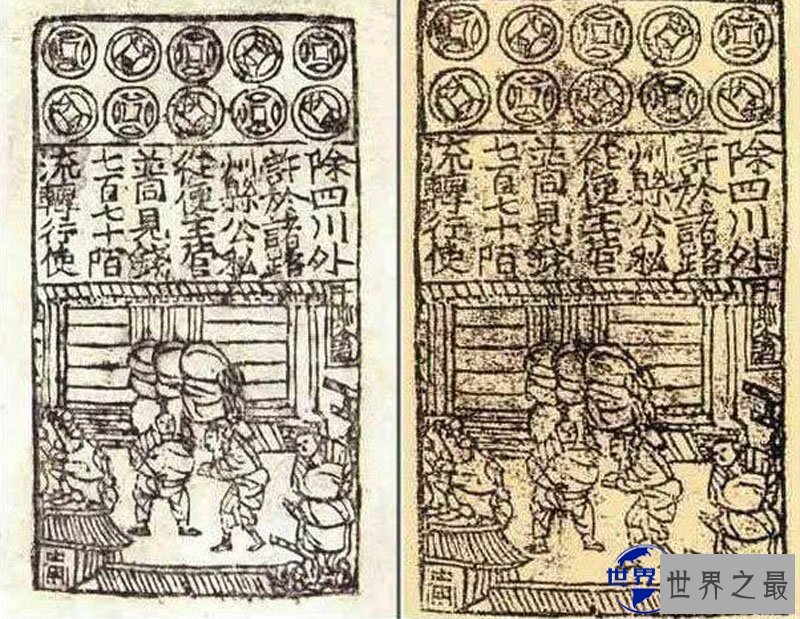 除四川外
許於諸路
州縣公私
從便主管
並同見錢
七百七十陌
流轉行使
除四川外
許於諸路
州縣公私
從便主管
並同見錢
七百七十陌
流轉行使
世界
世界之最